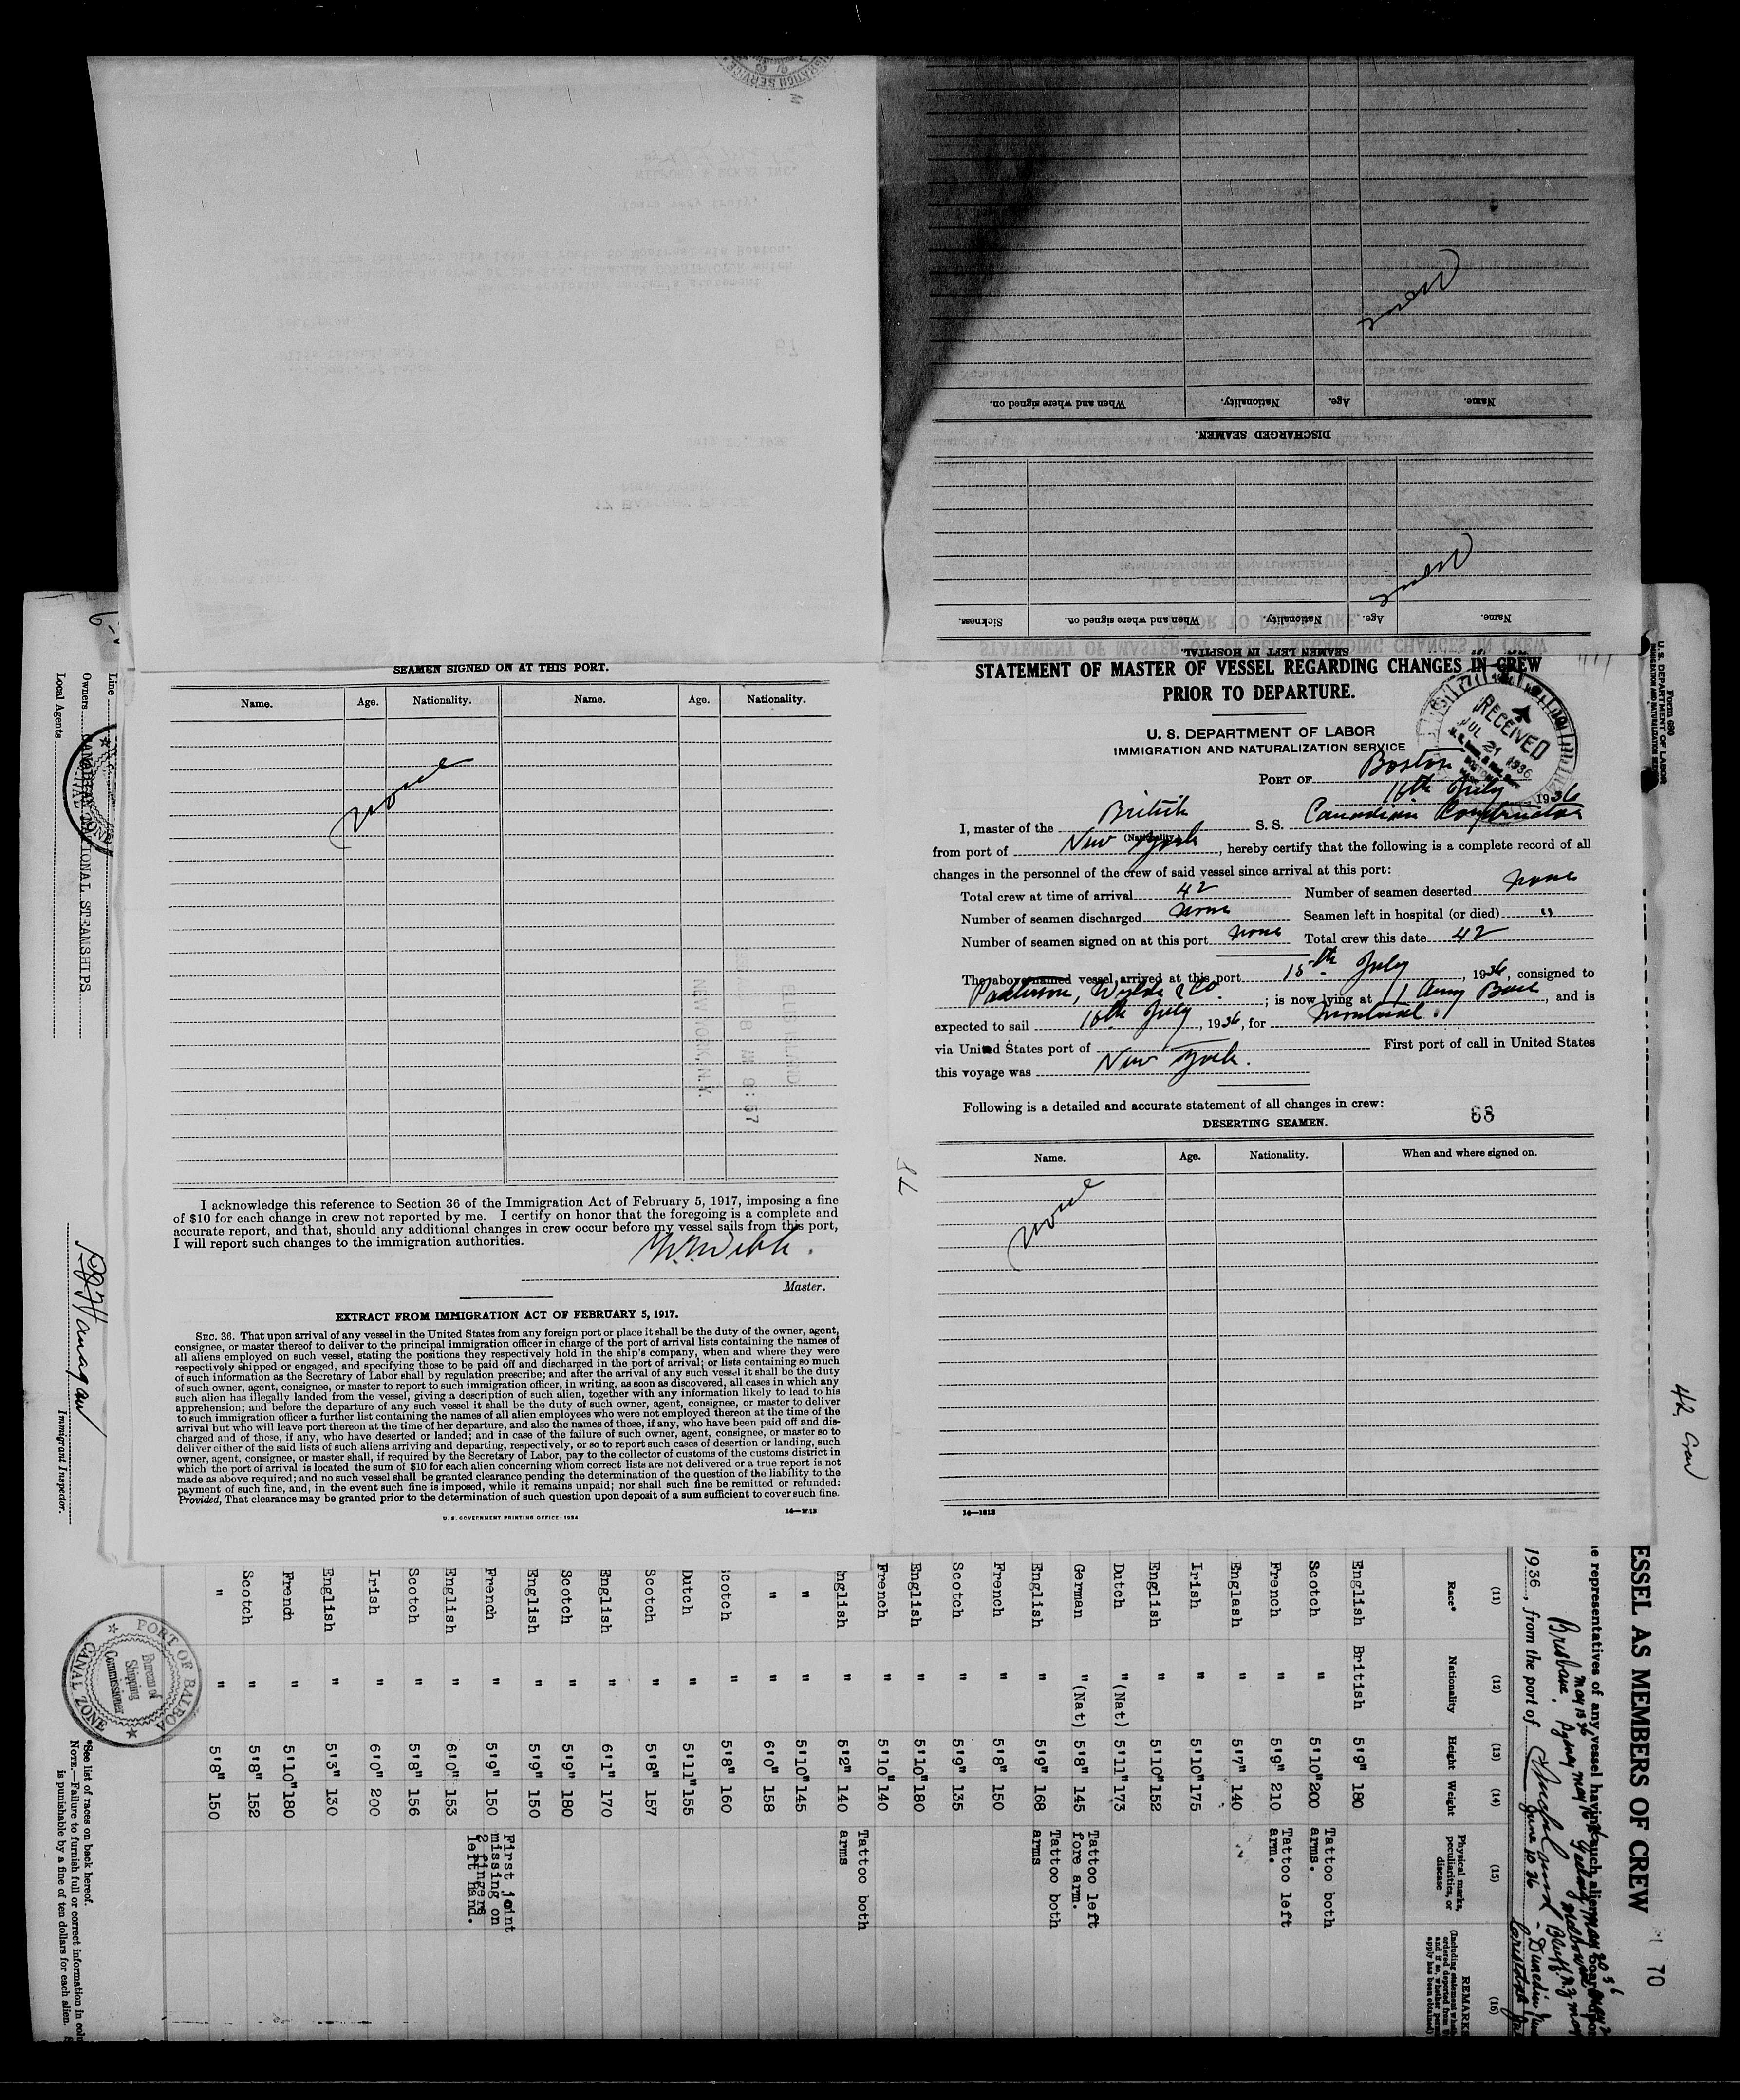 SEAMEN SIGNED ON AT THIS PORT.
Name. Age. Nationality. Name. Age. Nationality.
None
I acknowledge this reference to Section 36 of the Immigration Act of February 5, 1917, imposing a fine
of $10 for each change in crew not reported by me. I certify on honor that the foregoing is a complete and
accurate report, and that, should any additional changes in crew occur before my vessel sails from this port,
I will report such changes to the immigration authorities.
Master.
EXTRACT FROM IMMIGRATION ACT OF FEBRUARY 5, 1917.
SEC. 36. That upon arrival of any vessel in the United States from any foreign port or place it shall be the duty of the owner, agent,
consignee, or master thereof to deliver to the principal immigration officer in charge of the port of arrival lists containing the names of
all aliens employed on such vessel, stating the positions they respectively hold in the ship's company, when and where they were
respectively shipped or engaged, and specifying those to be paid off and discharged in the port of arrival; or lists containing so much
of such information as the Secretary of Labor shall by regulation prescribe; and after the arrival of any such vessel it shall be the duty
of such owner, agent, consignee, or master to report to such immigration officer, in writing, as soon as discovered, all cases in which any
such alien has illegally landed from the vessel, giving a description of such alien, together with any information likely to lead to his
apprehension; and before the departure of any such vessel it shall be the duty of such owner, agent, consignee, or master to deliver
to such immigration officer a further list containing the names of all alien employees who were not employed thereon at the time of the
arrival but who will leave port thereon at the time of her departure, and also the names of those, if any, who have been paid off and dis-
charged and of those, if any, who have deserted or landed; and in case of the failure of such owner, agent, consignee, or master so to
deliver either of the said lists of such aliens arriving and departing, respectively, or so to report such cases of desertion or landing, such
owner, agent, consignee, or master shall, if required by the Secretary of Labor, pay to the collector of customs of the customs district in
which the port of arrival is located the sum of $10 for each alien concerning whom correct lists are not delivered or a true report is not
made as above required; and no such vessel shall be granted clearance pending the determination of the question of the liability to the
payment of such fine, and, in the event such fine is imposed, while it remains unpaid; nor shall such fine be remitted or refunded:
Provided, That clearance may be granted prior to the determination of such question upon deposit of a sum sufficient to cover such fine.
U.S. GOVERNMENT PRINTING OFFICE: 1934
DISCHARGED SEAMEN.
Name. Age. Nationality. When and where signed on.
None
SEAMEN LEFT IN HOSPITAL
Name. Age. Nationality. When and where signed on. Sickness.
None
STATEMENT OF MASTER OF VESSEL REGARDING CHANGES IN CREW
PRIOR TO DEPARTURE.
U. S. DEPARTMENT OF LABOR
IMMIGRATION AND NATURALIZATION SERVICE
RECEIVED
JUL 21 1936
PORT OF Boston
16th July 1936
I, master of the British S. S. Canadian Constructor
(Nationality)
from port of New York, hereby certify that the following is a complete record of all
changes in the personnel of the crew of said vessel since arrival at this port:
Total crew at time of arrival 42 Number of seamen deserted none
Number of seamen discharged none Seamen left in hospital (or died) "
Number of seamen signed on at this port none Total crew this date 42
The above-named vessel arrived at this port 15th July, 1936, consigned to
Patterson, Wylde & Co; is now lying at Army Base, and is
expected to sail 16th July, 1936, for Montreal
via United States port of First port of call in United States
this voyage was New York.
Following is a detailed and accurate statement of all changes in crew:
68
DESERTING SEAMEN.
Name. Age. Nationality. When and where signed on.
None
14—1613
Form 680
U. S. DEPARTMENT OF LABOR
42 Crew
Line
Owners CANADIAN NATIONAL STEAMSHIPS
Local Agents
Immigrant Inspector.
PORT OF BALBOA
Bureau of
Shipping
Commissioner
CANAL ZONE
70
ESSEL AS MEMBERS OF CREW
1936, from the port of
(11) (12) (13) (14) (15) (16)
Race* Nationality Height Weight Physical marks, peculiarities, or disease REMARKS
English British 5'9" 180
Scotch " 5'10" 200 Tattoo both arms.
French " 5'9" 210 Tattoo left arm.
Englash " 5'7" 140
Irish " 5'10" 175
English " 5'10" 152
Dutch "(Nat) 5'11" 173
German "(Nat) 5'8" 145 Tattoo left fore arm.
English " 5'9" 168 Tattoo both arms
French " 5'8" 150
Scotch " 5'9" 135
English " 5'10" 180
French " 5'10" 140
nglish " 5'2" 140 Tattoo both arms
" " 5'10" 145
" " 6'0" 158
cotch " 5'8" 160
Dutch " 5'11" 155
Scotch " 5'8" 157
English " 6'1" 170
Scotch " 5'9" 180
English " 5'9" 150
French " 5'9" 150 First joint missing on 2 fingers left hand.
English " 6'0" 153
Scotch " 5'8" 156
Irish " 6'0" 200
English " 5'3" 130
French " 5'10" 180
Scotch " 5'8" 152
" " 5'8" 150
*See list of races on back hereof.
NOTE.—Failure to furnish full or correct information in colu
is punishable by a fine of ten dollars for each alien.